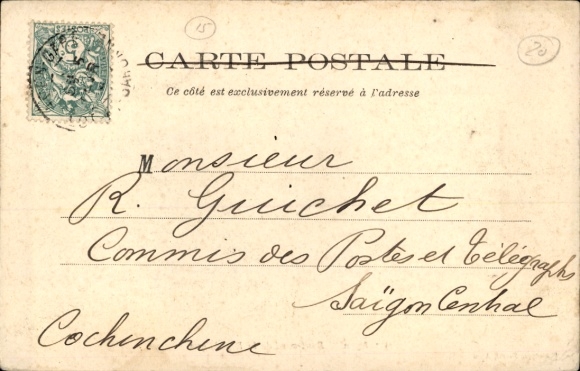 15
20
CARTE POSTALE
Ce côté est exclusivement réservé à l'adresse
Monsieur
R. Guichet
Commis des Postes et Télégraphs
Saïgon Central
Cochinchine